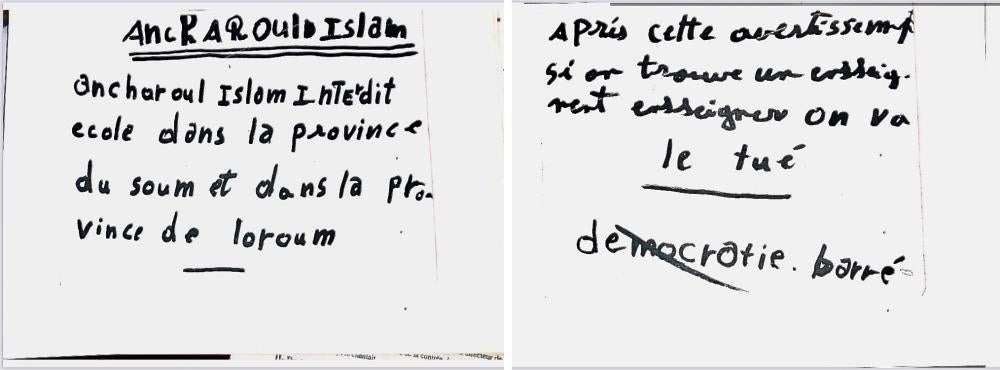 AncKAROulD Islam
ancharoul Islam InTErdit
ecole dans la province
du soum et dans la pro-
vince de loroum
Apris cette avertissemnt
si on trouve un ensseig-
nent ensseigner on va
le tué
democratie. barré